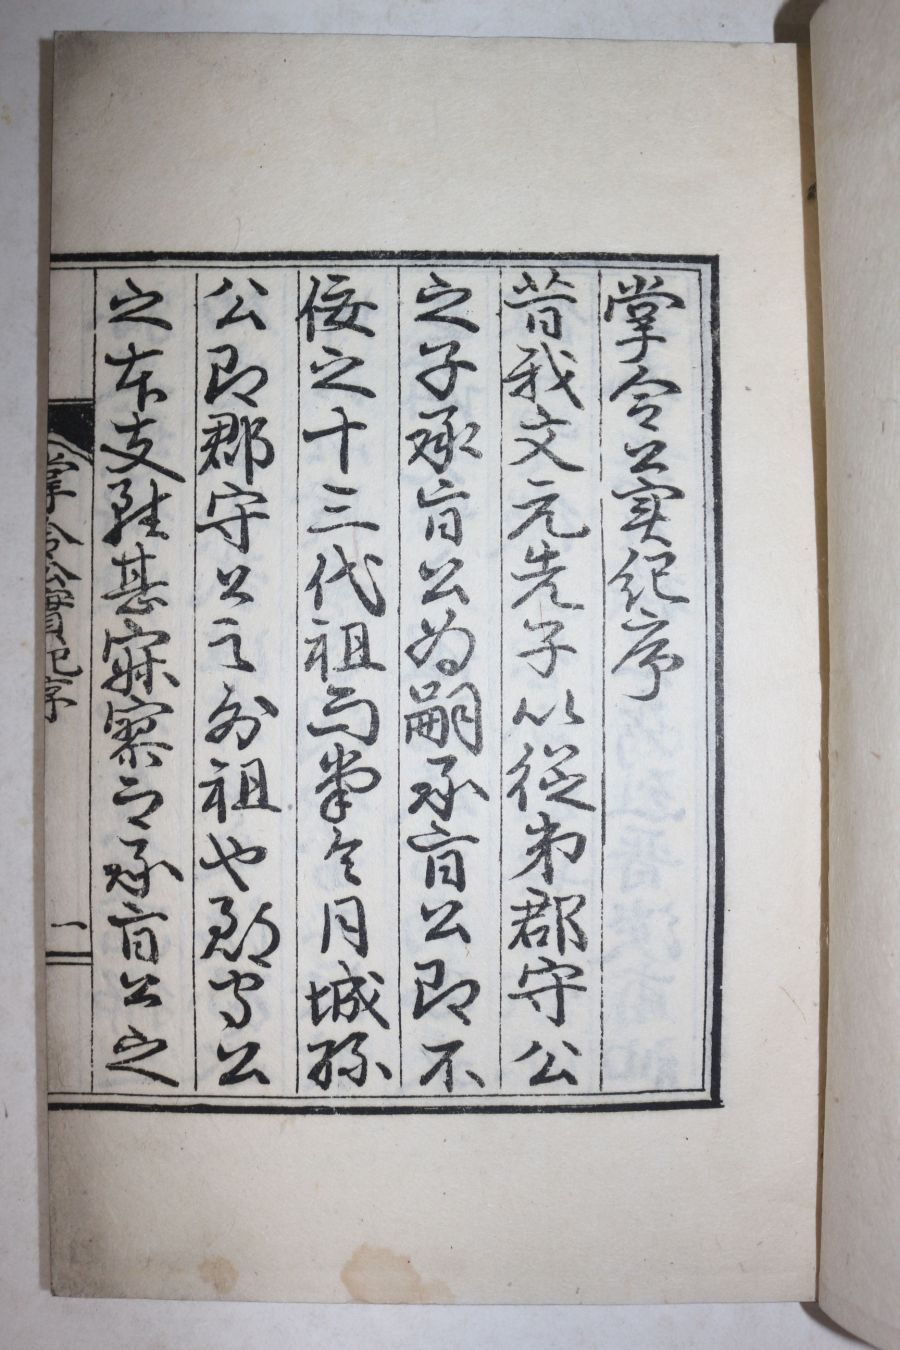 掌令公實紀序
昔我文元先子以從弟郡守公
之子承旨公為嗣承旨公即不
佞之十三代祖而掌令月城孫
公即郡守公之外祖也郡守公
之本支甚寂寥而承旨公之
掌令公實記序 一